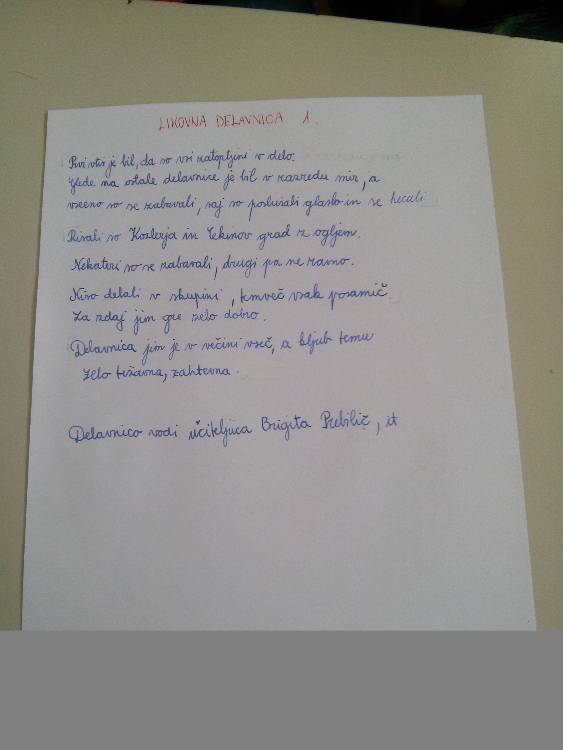 LIKOVNA DELAVNICA 1.
Prvi vtis je bil, da so vsi zatopljeni v delo.
Glede na ostale delavnice je bil v razredu mir, a
vseeno so se zabavali, saj so poslušali glasbo in se hecali
Risali so Kozlerja in Cekinov grad z ogljem.
Nekateri so se zabavali, drugi pa ne ravno.
Niso delali v skupini, temveč vsak posamič.
Za zdaj jim gre zelo dobro.
Delavnica jim je v večini všeč, a kljub temu
zelo težavna, zahtevna.
Delavnico vodi učiteljica Brigita Prebilič, it